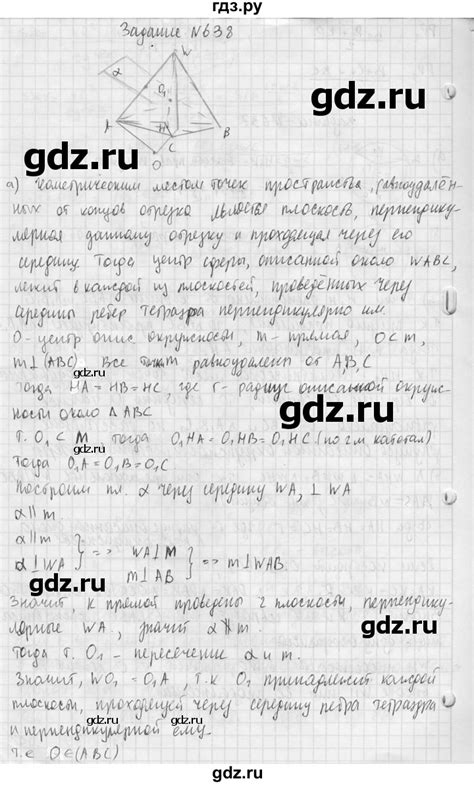 гдз.ру
Задание №638
W
α
O₁
A
H
C
B
O
gdz.ru
gdz.ru
а) Геометрическим местом точек пространства, равноудалён-
ных от концов отрезка является плоскость, перпендику-
лярная данному отрезку и проходящая через его
середину. Тогда центр сферы, описанной около WABC,
лежит в каждой из плоскостей, проведённых через
середины ребер тетраэдра перпендикулярно им.
gdz.ru
O - центр опис окружности, m - прямая, O⊂m,
m⊥(ABC). Все точки равноудалены от A,B,C
gdz.ru
Тогда HA = HB = HC, где r - радиус описанной окруж-
ности около △ABC
gdz.ru
т. O₁ ⊂ M, тогда O₁HA = O₁HB = O₁HC (по 2м катетам)
Тогда O₁A = O₁B = O₁C
gdz.ru
Построим пл. α через середину WA, ⊥ WA
α∥m.
α∥m
α⊥WA } => WA⊥M
m⊥AB } => m⊥WAB.
gdz.ru
gdz.ru
Значит, к прямой проведены 2 плоскости, перпендику-
лярные WA, значит α∦m.
Тогда т. O₁ - пересечение α и m.
gdz.ru
Значит, WO₁ = O₁A, т.к O₁ принадлежит каждой
плоскости, проходящей через середину ребра тетраэдра
и перпендикулярной ему.
gdz.ru
т.е O∈(ABC)